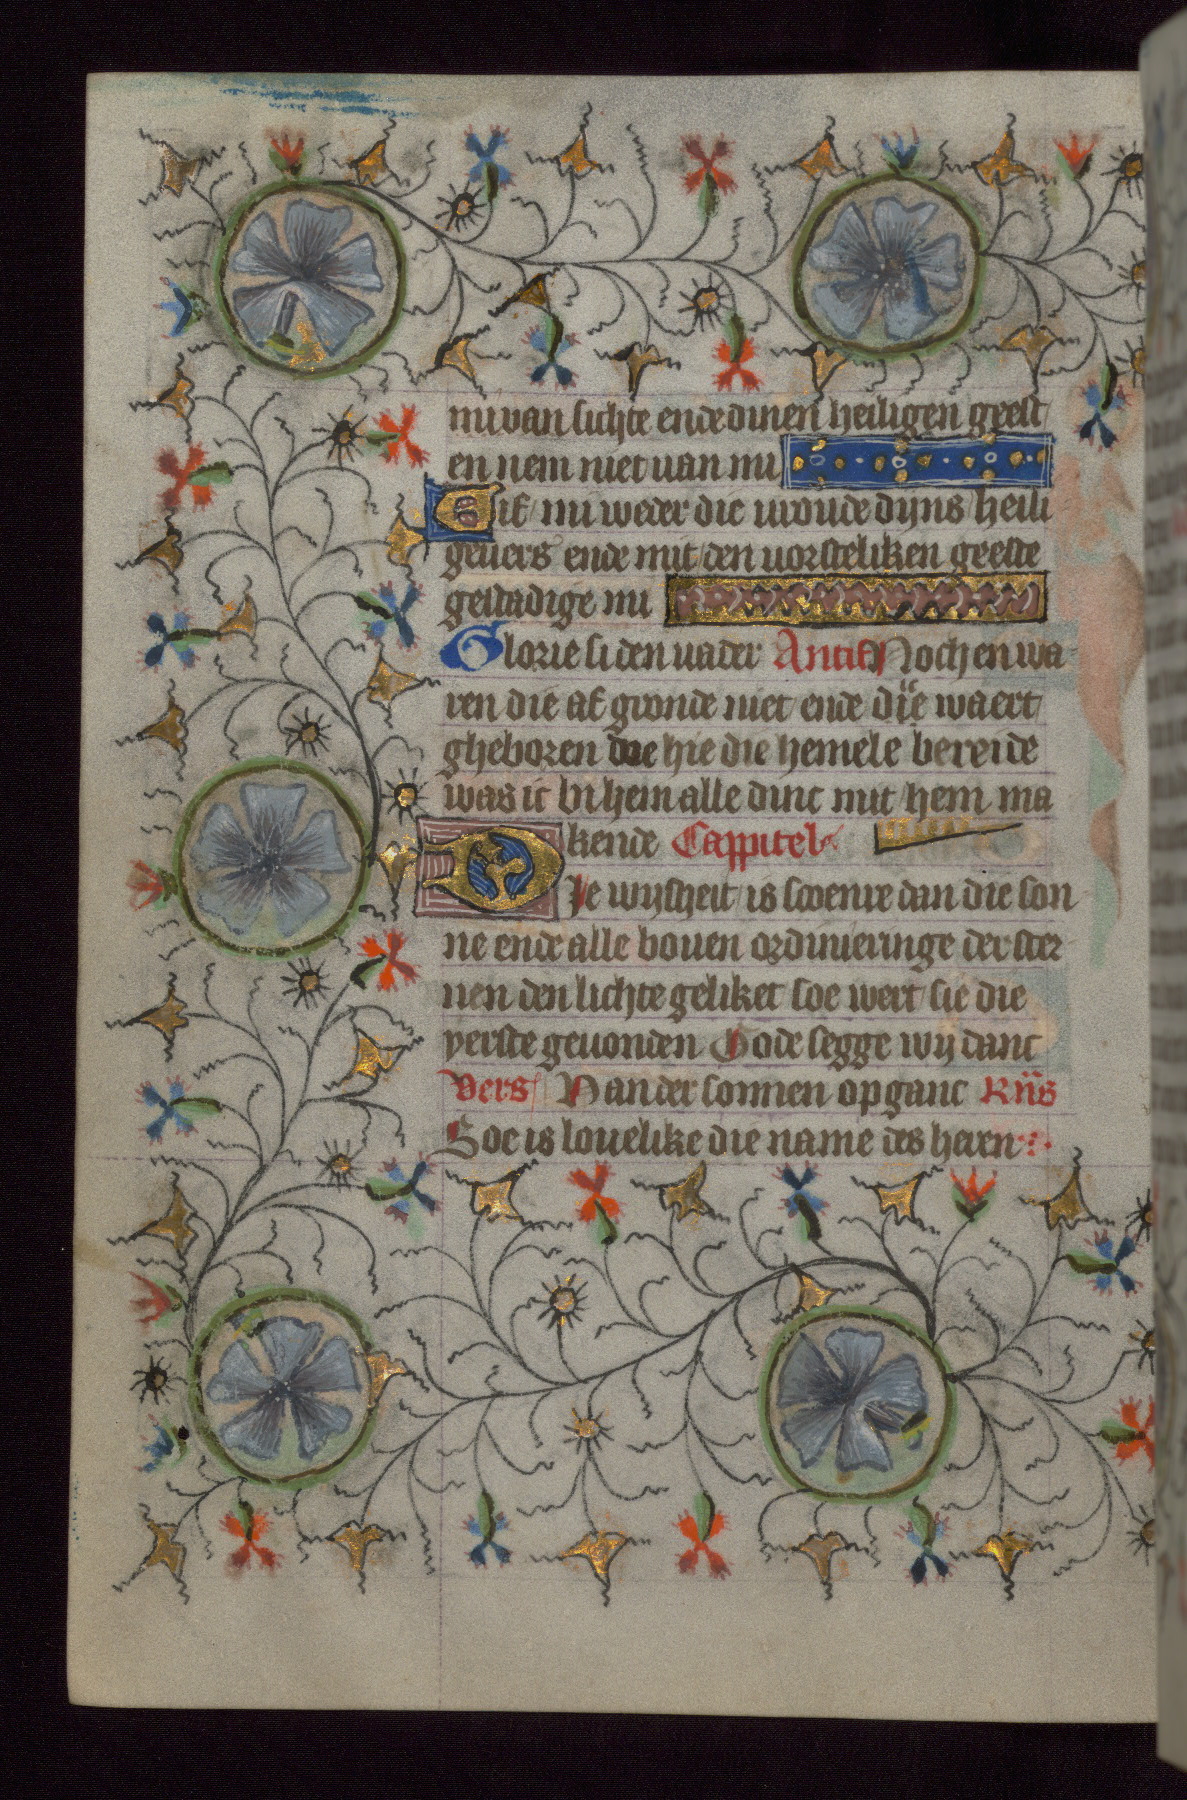 mi van lichte ende dinen heiligen geest
en nem niet van mi
Gif mi weder die vroude dijns heili
gevers ende mit den vorsteliken geeste
gestadige mi
Glorie si den vader Antif Noch en wa
ren die afgronde niet ende die waert
gheboren doe hie die hemele bereide
was ic bi hem alle dinc mit hem ma
kende Cappitel
Die wijsheit is scoenre dan die son
ne ende alle boven ordinieringe der ster
nen den lichte geliket soe wert sie die
yerste gevonden Gode segge wij danc
Vers Van der sonnen opganc Riis
Soe is lovelike die name des heren